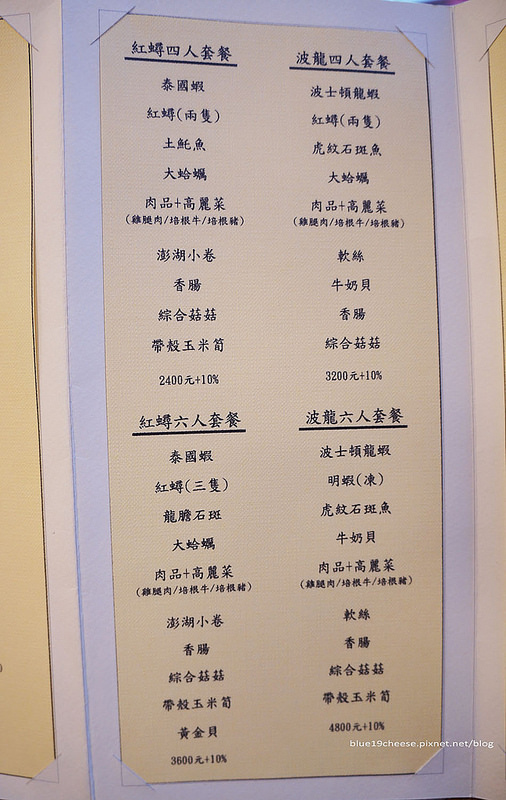 紅蟳四人套餐
泰國蝦
紅蟳(兩隻)
土魠魚
大蛤蠣
肉品+高麗菜
(雞腿肉/培根牛/培根豬)
澎湖小卷
香腸
綜合菇菇
帶殼玉米筍
2400元+10%
波龍四人套餐
波士頓龍蝦
紅蟳(兩隻)
虎紋石斑魚
大蛤蠣
肉品+高麗菜
(雞腿肉/培根牛/培根豬)
軟絲
牛奶貝
香腸
綜合菇菇
3200元+10%
紅蟳六人套餐
泰國蝦
紅蟳(三隻)
龍膽石斑
大蛤蠣
肉品+高麗菜
(雞腿肉/培根牛/培根豬)
澎湖小卷
香腸
綜合菇菇
帶殼玉米筍
黃金貝
3600元+10%
波龍六人套餐
波士頓龍蝦
明蝦(凍)
虎紋石斑魚
牛奶貝
肉品+高麗菜
(雞腿肉/培根牛/培根豬)
軟絲
香腸
綜合菇菇
帶殼玉米筍
4800元+10%
blue19cheese.pixnet.net/blog